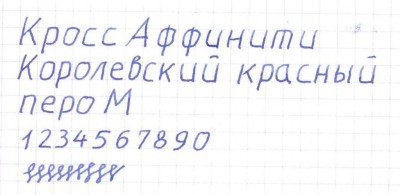 Кросс Аффинити
Королевский красный
перо М
1234567890